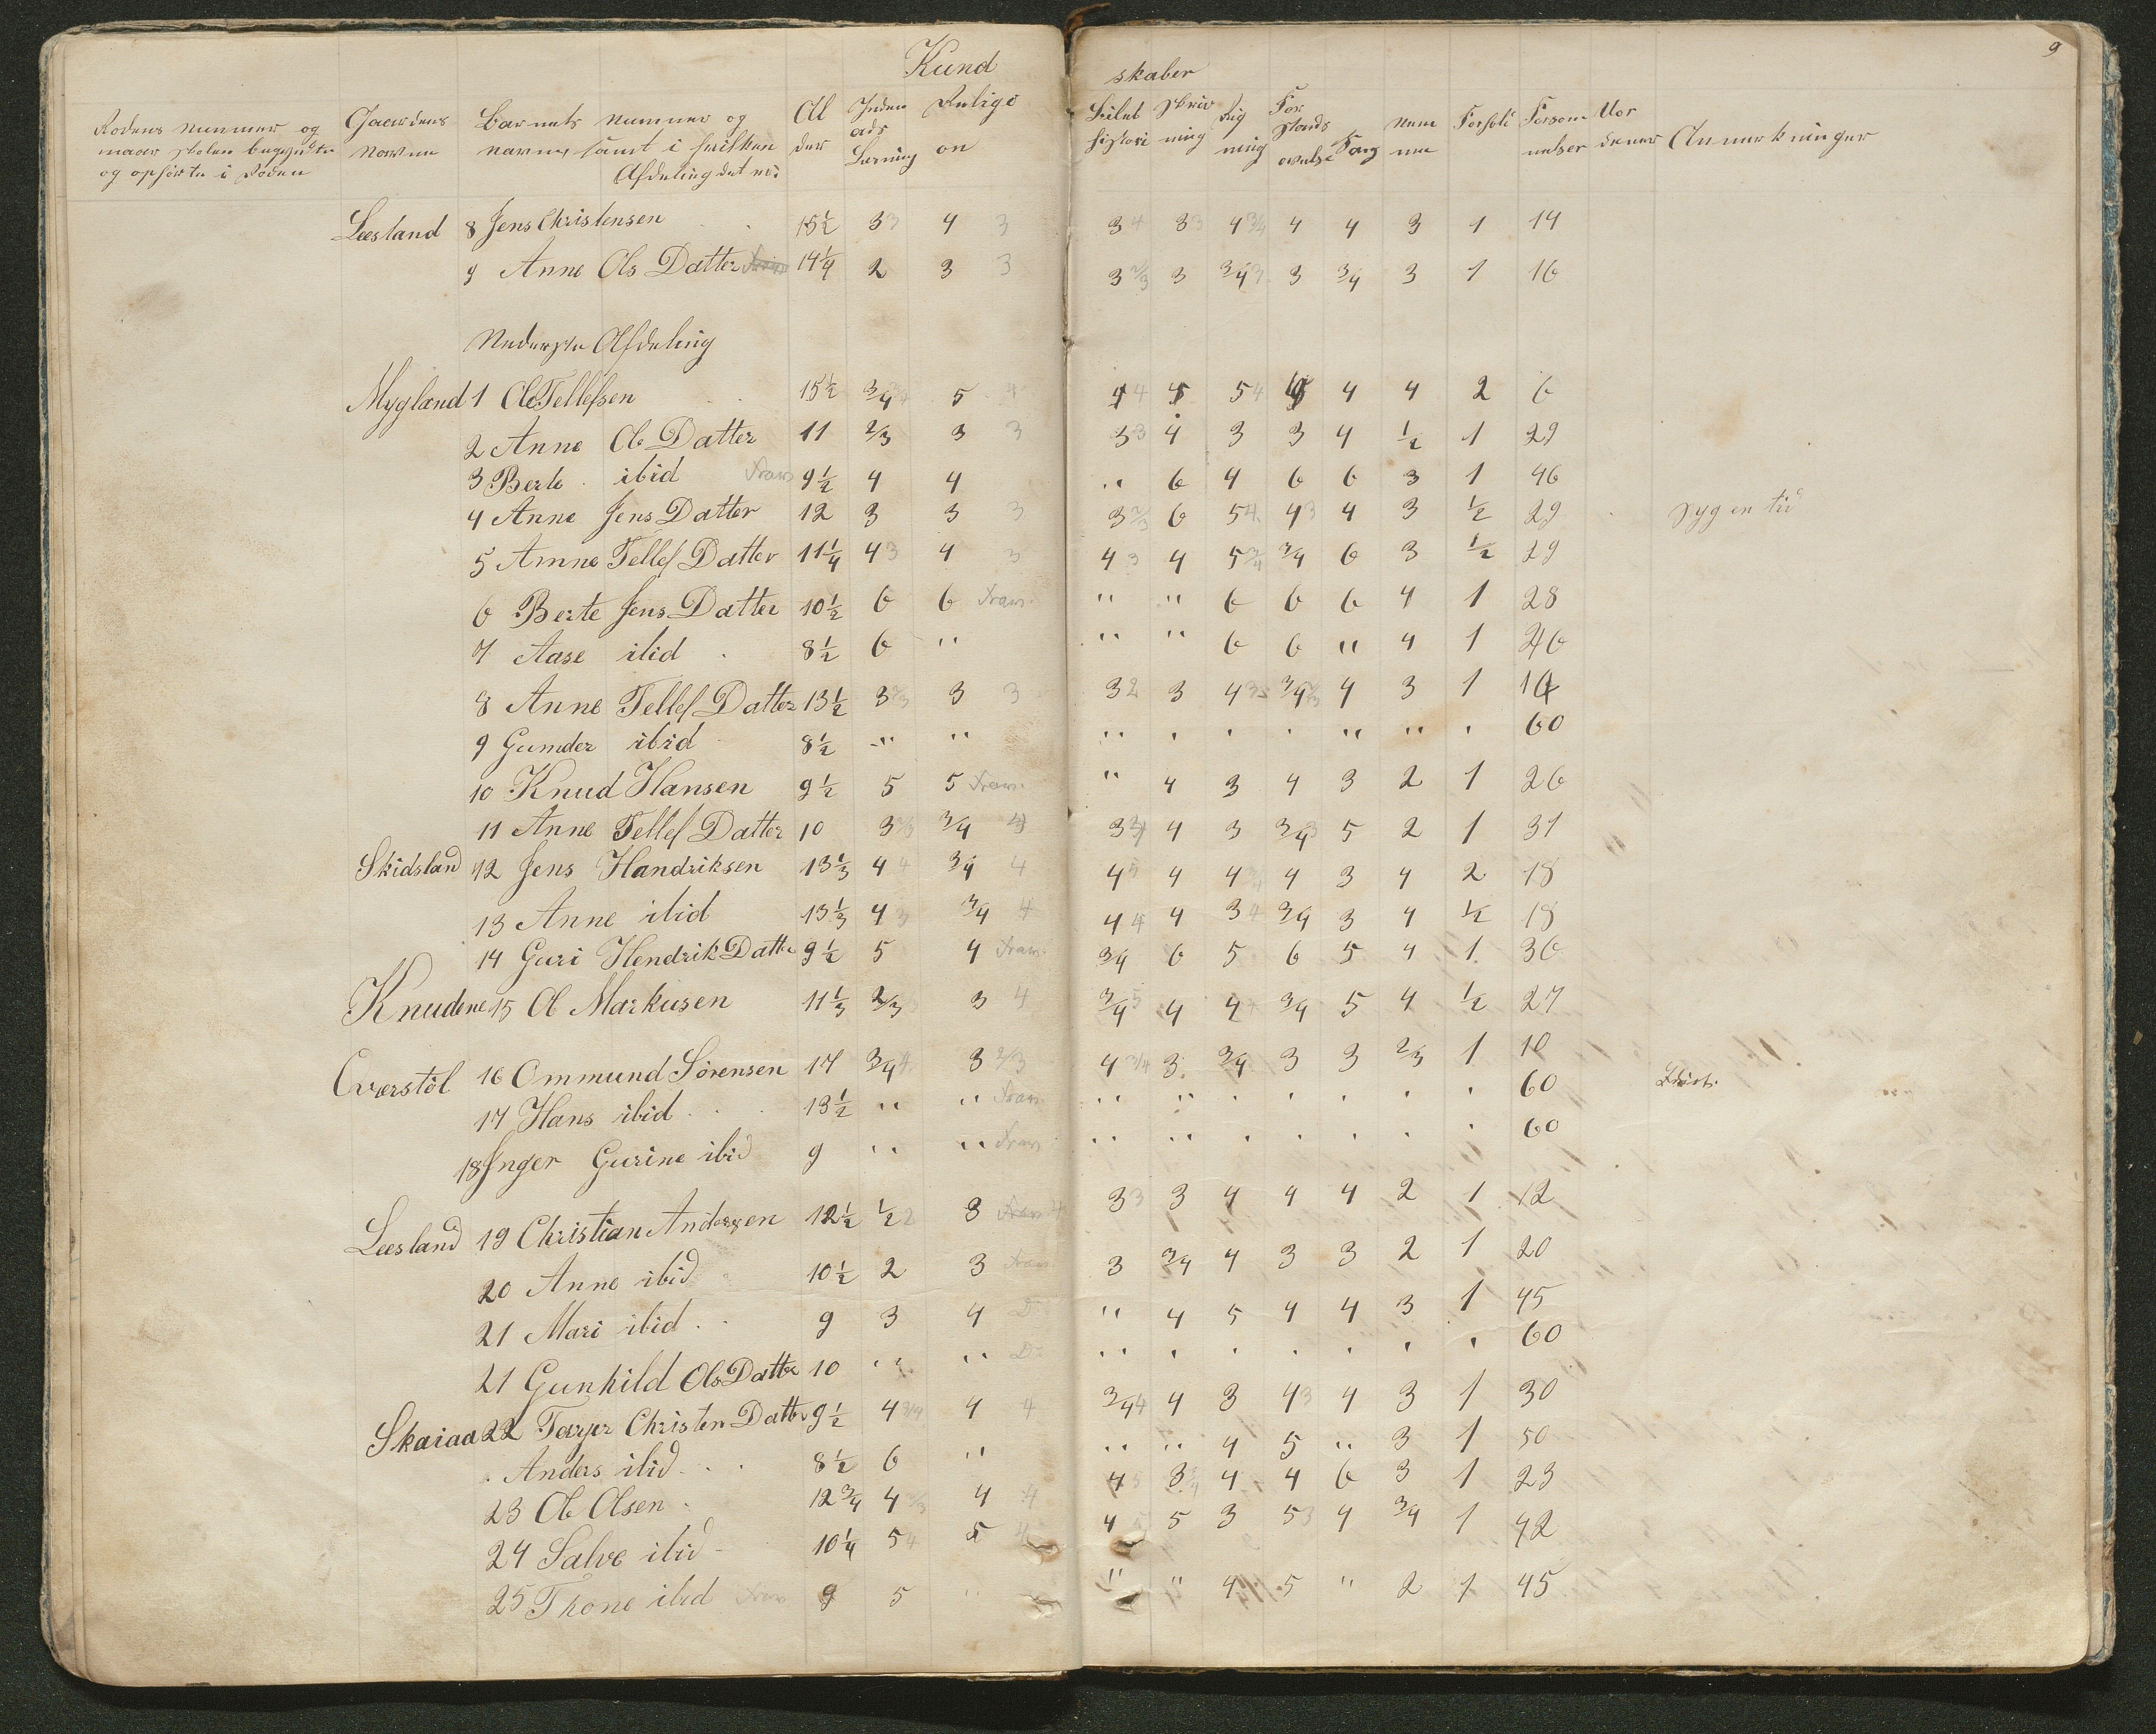 9
Kund skaber
Rodens nummer og naar skolen begyndte og ophørte i Roden
Gaardens Navne
Barnets nummer og navne, samt i hvilken Afdeling det er:
Al der
Inden ads Læsning
Religi on
Bibel historie
Skriv ning
Reg ning
For stands øvelse
Sang
Nem me
Forhold
Forsøm melser
Uor dener
Anmærkninger
Leesland 8 Jens Christensen 15½ 3 3 4 3 3 4 3 3 4 3/4 4 4 3 1 14
9 Anne Ols Datter 14¼ 2 3 3 3 2/3 3 3/4 3 3 3/4 3 1 16
Nederste Afdeling
Mygland 1 Ole Tellefsen 15½ 3/4 5 4 4 4 5 4 4 4 2 6
2 Anne Ole Datter 11 2/3 3 3 3 3 4 3 3 4 ½ 1 29
3 Berte ibid frav 9½ 4 4 " 6 4 6 6 3 1 46
4 Anne Jens Datter 12 3 3 3 3 2/3 6 5 4 4 3 4 3 ½ 29 syg en tid
5 Amne Tellef Datter 11¼ 4 3 4 3 4 3 4 5 3/4 3/4 6 3 ½ 29
6 Berte Jens Datter 10½ 6 6 frav. " " 6 6 6 4 1 28
7 Aase ibid 8½ 6 " " " 6 6 " 4 1 26
8 Anne Tellef Datter 13½ 3 2/3 3 3 3 2 3 4 3 3/4 4 3 1 14
9 Gumder ibid 8½ " " " " " " " " " 60
10 Knud Hansen 9½ 5 5 frav. " 4 3 4 3 2 1 26
11 Anne Tellef Datter 10 3 3/4 4 3 4 4 3 3/4 3 5 2 1 31
Skidsland 12 Jens Handriksen 13⅓ 4 4 3/4 4 4 5 4 4 3/4 4 3 4 2 18
13 Anne ibid 13⅓ 4 3 3/4 4 4 4 4 3 4 3/4 3 4 ½ 18
14 Guri Hendrik Datter 9½ 5 4 frav. 3/4 6 5 6 5 4 1 36
Knudene 15 Ole Markusen 11⅓ 2/3 3 3 4 3/4 5 4 4 4 3/4 5 4 ½ 27
Øverstøl 16 Ommund Sörensen 14 3/4 4 3 2/3 4 3/4 3 3/4 3 3 2/3 1 10
17 Hans ibid 13½ " " frav. " " " " " " " 60 Idiot.
18 Inger Gurine ibid 9 " " frav. " " " " " " " 60
Leesland 19 Christian Andersen 12½ ½ 2 3 frav 3 3 3 4 4 4 2 1 12
20 Anne ibid 10½ 2 3 frav 3 3/4 4 3 3 2 1 20
21 Mari ibid 9 3 4 Do " 4 5 4 4 3 1 45
21 Gunhild Ols Datter 10 " " Do " " " " " " " 60
Skaiaa 22 Terjer Christen Datter 9½ 4 3/4 4 4 3/4 4 4 3 4 3 4 3 1 30
Anders ibid 8½ 6 " " " 4 5 " 3 1 50
23 Ole Olsen 12¾ 4 2/3 4 4 4 5 3 4 4 6 3 1 23
24 Salve ibid 10¼ 5 4 5 4 5 3 5 3 4 3/4 1 42
25 Thone ibid frav 9 5 " " " 4 5 " 2 1 45